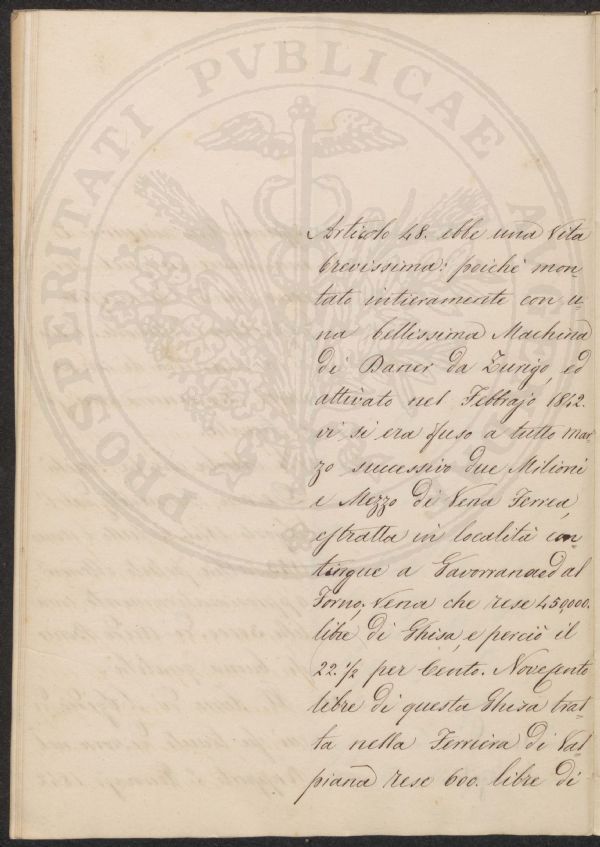 PROSPERITATI PVBLICAE AVGENDAE
Articolo 48. ebbe una Vita
brevissima: poichè mon
tato intieramente con u-
na bellissima Machina
di Baner da Zurigo, ed
attivato nel Febbrajo 1842.
vi si era fuso a tutto Mar
zo successivo due Milioni
e Mezzo di Vena Ferrea,
estratta in località con
tingue a Gavorrana ed al
Forno; Vena che rese 450,000.
libre di Ghisa, e perciò il
22.½ per Cento. Novecento
libre di questa Ghisa trat-
ta nella Ferriera di Val
piana rese 600. libre di